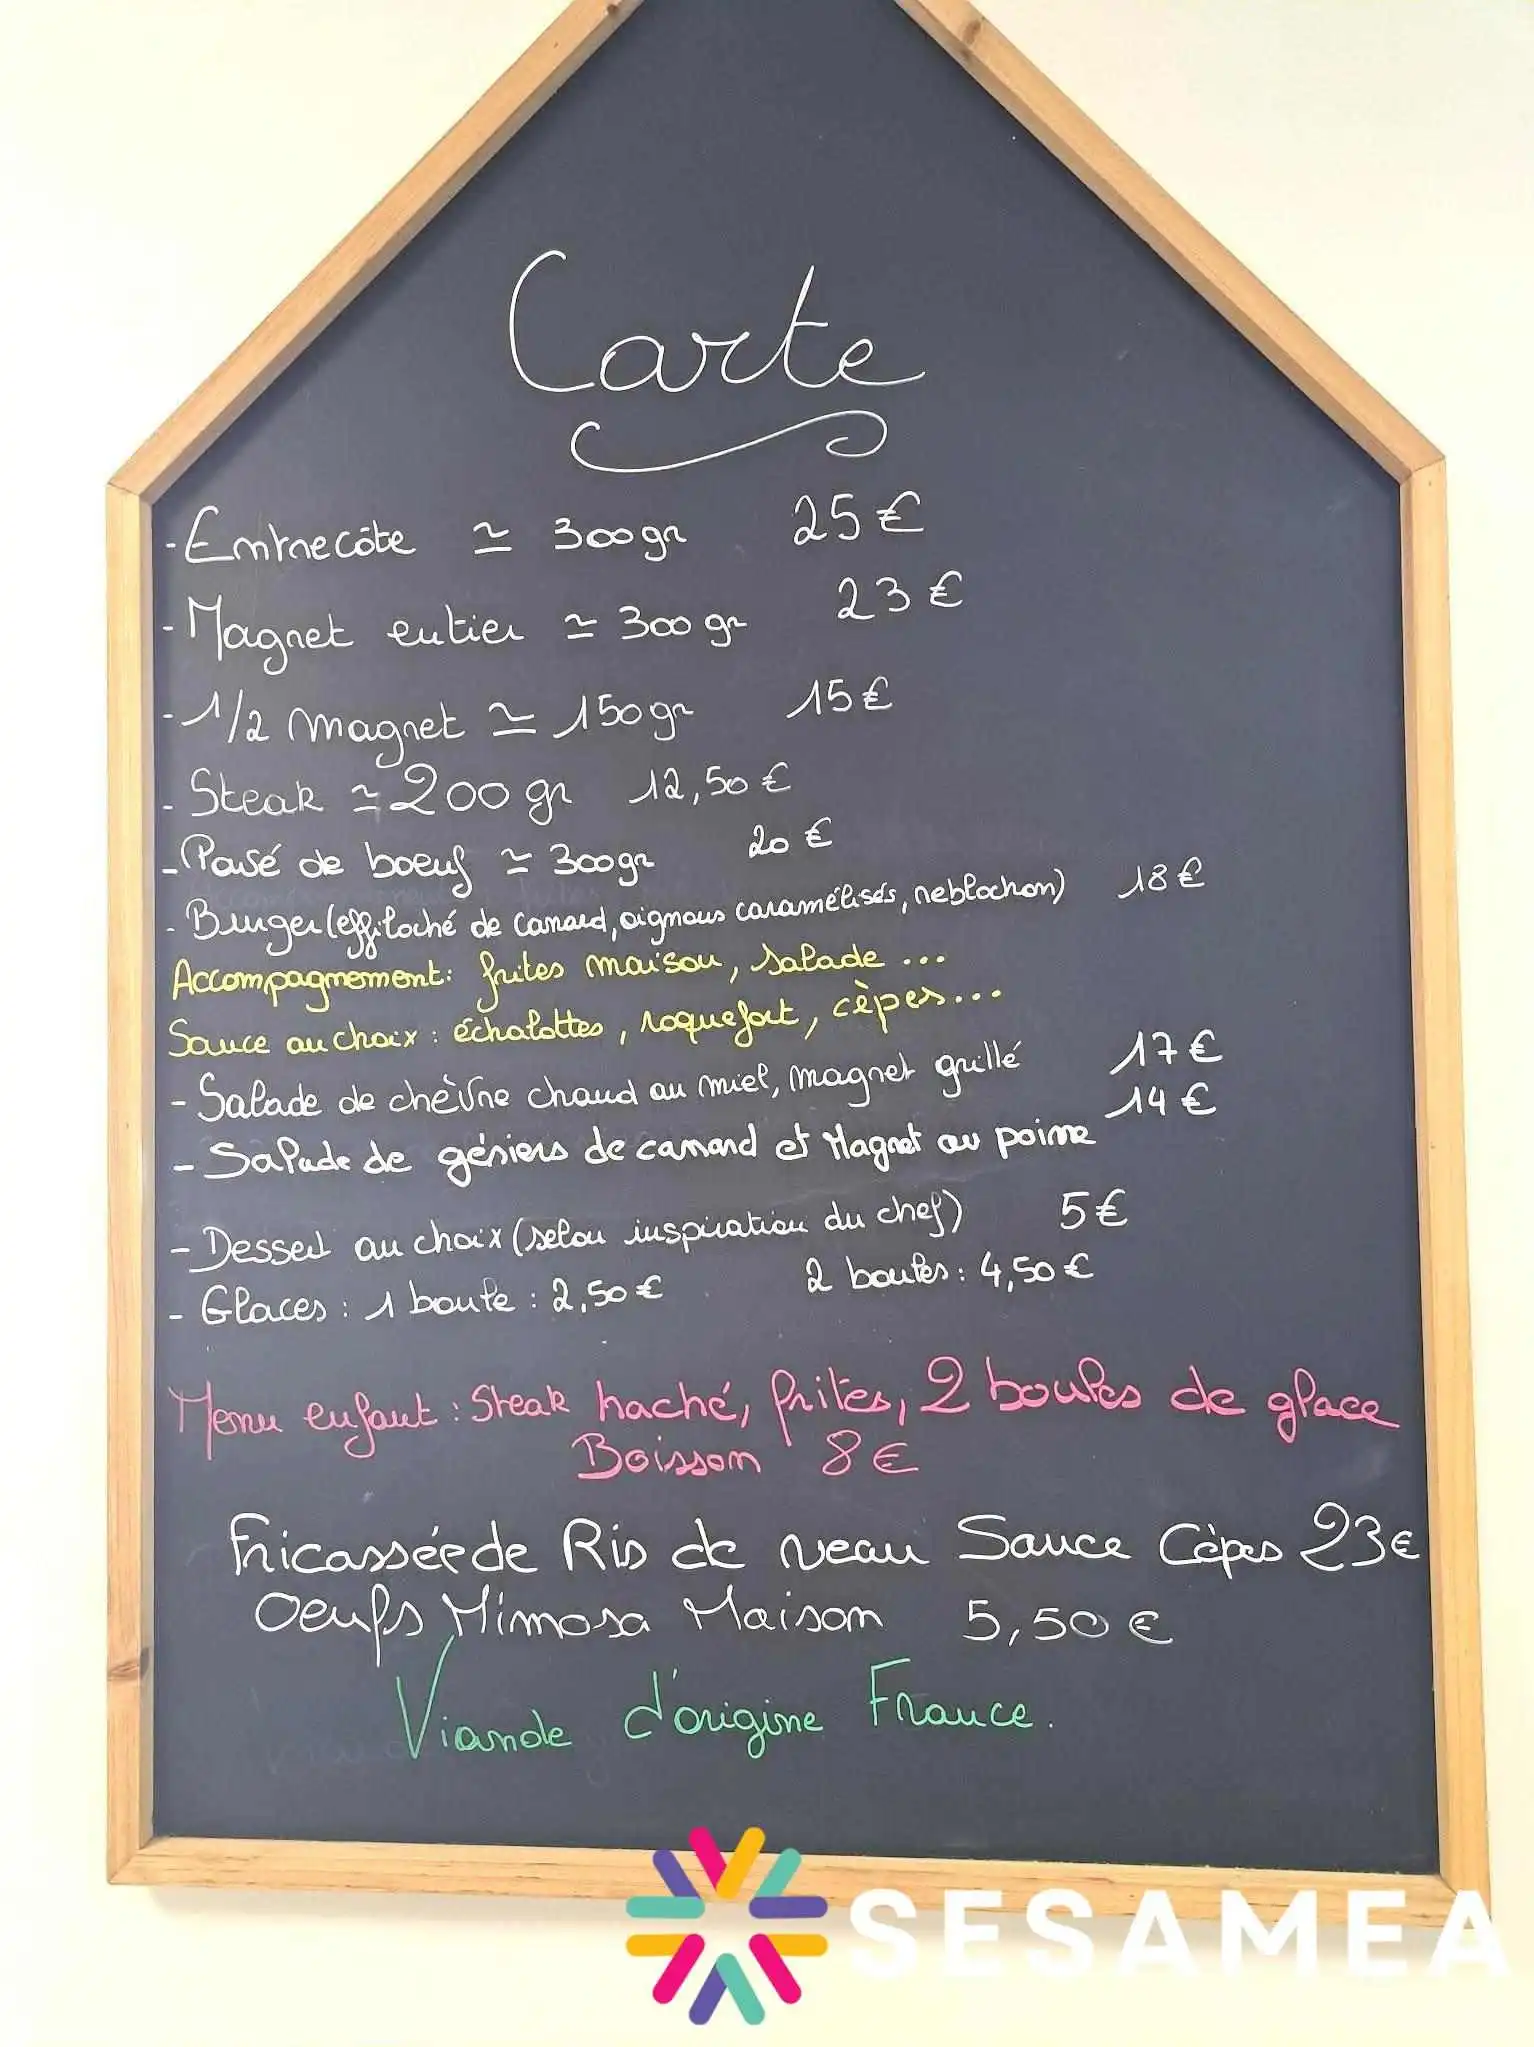 Carte
- Entrecôte ≃ 300gr 25€
- Magret entier ≃ 300 gr 23€
- 1/2 Magret ≃ 150gr 15€
- Steak ≃ 200 gr 12,50€
- Pavé de boeuf ≃ 300gr 20€
- Burger (effiloché de canard, oignons caramélisés, reblochon) 18€
Accompagnement: frites maison, salade ...
Sauce au choix : échalottes, roquefort, cèpes...
- Salade de chèvre chaud au miel, magret grillé 17€
- Salade de gésiers de canard et Magret au poivre 14€
- Dessert au choix (selon inspiration du chef) 5€
- Glaces : 1 boule : 2,50€ 2 boules : 4,50€
Menu enfant : Steak haché, frites, 2 boules de glace
Boisson 8€
Fricassée de Ris de veau Sauce Cèpes 23€
Oeufs Mimosa Maison 5,50€
Viande d'origine France.
SESAMEA